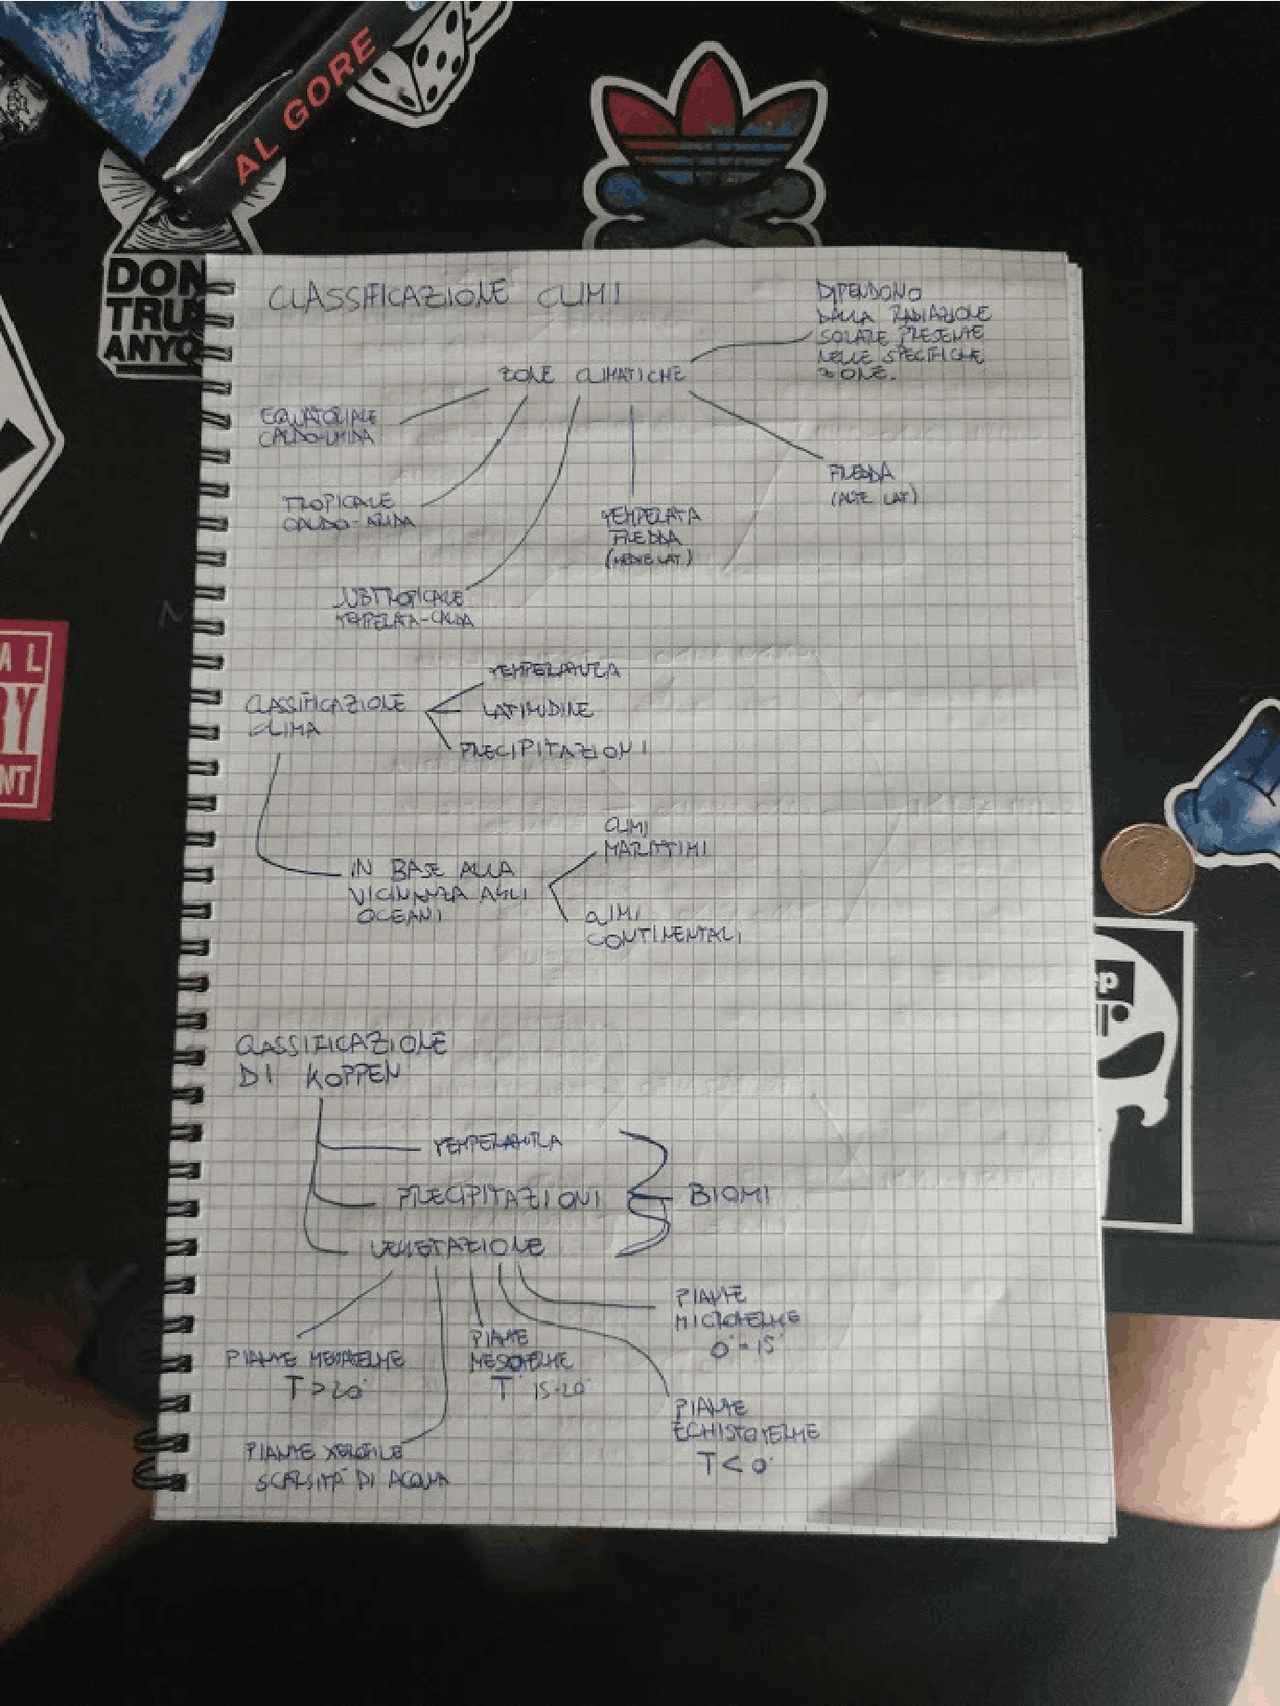 AL GORE
DON
TRU
ANYO
CLASSIFICAZIONE CLIMI
DIPENDONO
DALLA RADIAZIONE
SOLARE PRESENTE
NELLE SPECIFICHE
ZONE.
ZONE CLIMATICHE
EQUATORIALE
CALDO-UMIDA
TROPICALE
CALDO-ARIDA
SUBTROPICALE
TEMPERATA-CALDA
TEMPERATA
FREDDA
(MEDIE LAT.)
FREDDA
(ALTE LAT)
CLASSIFICAZIONE
CLIMA
TEMPERATURA
LATITUDINE
PRECIPITAZIONI
IN BASE ALLA
VICINANZA AGLI
OCEANI
CLIMI
MARITTIMI
CLIMI
CONTINENTALI
CLASSIFICAZIONE
DI KOPPEN
TEMPERATURA
PRECIPITAZIONI
VEGETAZIONE
BIOMI
PIANTE MEGATERME
T > 20°
PIANTE XEROFILE
SCARSITÀ DI ACQUA
PIANTE
MESOTERME
T° 15-20°
PIANTE
MICROTERME
0° - 15°
PIANTE
ECHISTOTERME
T < 0°
AL
RY
NT